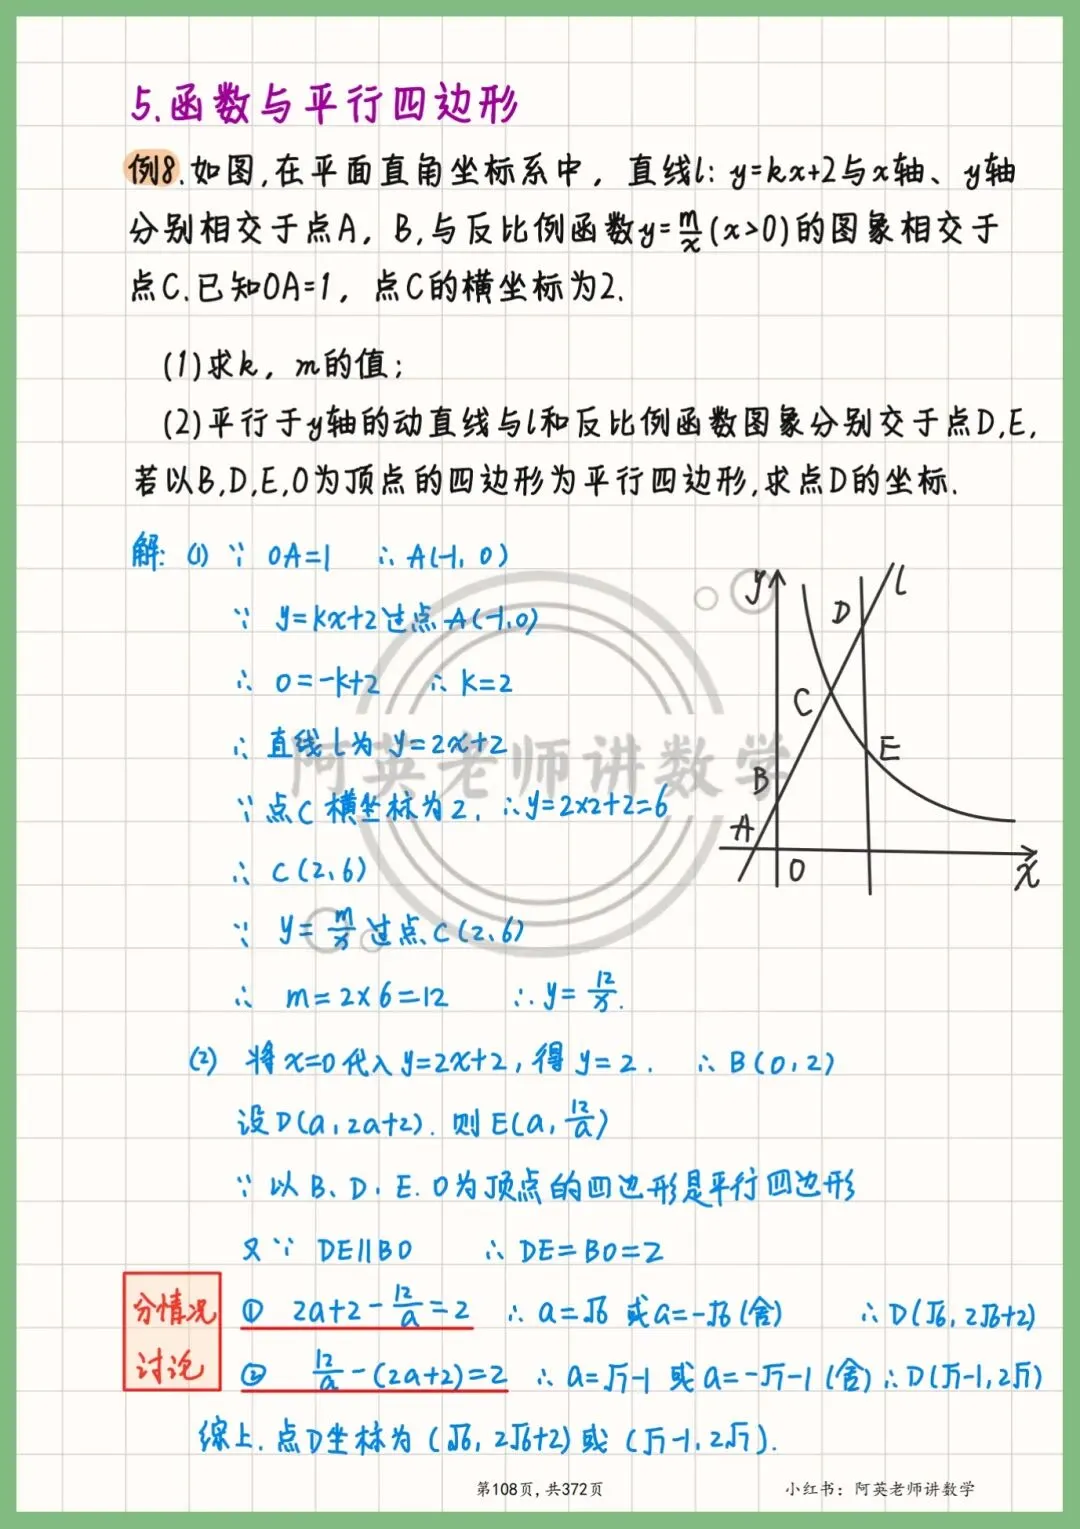 5.函数与平行四边形
例8.如图,在平面直角坐标系中，直线l: y=kx+2与x轴、y轴
分别相交于点A，B,与反比例函数y=m/x(x>0)的图象相交于
点C.已知OA=1，点C的横坐标为2.
(1)求k，m的值;
(2)平行于y轴的动直线与l和反比例函数图象分别交于点D,E,
若以B,D,E,O为顶点的四边形为平行四边形,求点D的坐标.
解: (1) ∵ OA=1 ∴ A(-1, 0)
∵ y=kx+2过点A(-1,0)
∴ 0=-k+2 ∴ k=2
∴ 直线l为 y=2x+2
∵ 点C横坐标为2, ∴y=2×2+2=6
∴ C(2,6)
∵ y=m/x过点C(2,6)
∴ m=2×6=12 ∴y=12/x.
(2) 将x=0代入y=2x+2,得y=2. ∴B(0,2)
设D(a,2a+2).则E(a,12/a)
∵ 以B、D、E.O为顶点的四边形是平行四边形
又∵ DE∥BO ∴ DE=BO=2
分情况
讨论
① 2a+2-12/a=2 ∴ a=√6 或a=-√6(舍) ∴D(√6, 2√6+2)
② 12/a-(2a+2)=2 ∴ a=√7-1 或 a=-√7-1 (舍) ∴D(√7-1,2√7)
综上.点D坐标为(√6, 2√6+2)或(√7-1,2√7).
y
l
D
C
E
B
A
O
x
阿英老师讲数学
第108页,共372页
小红书：阿英老师讲数学